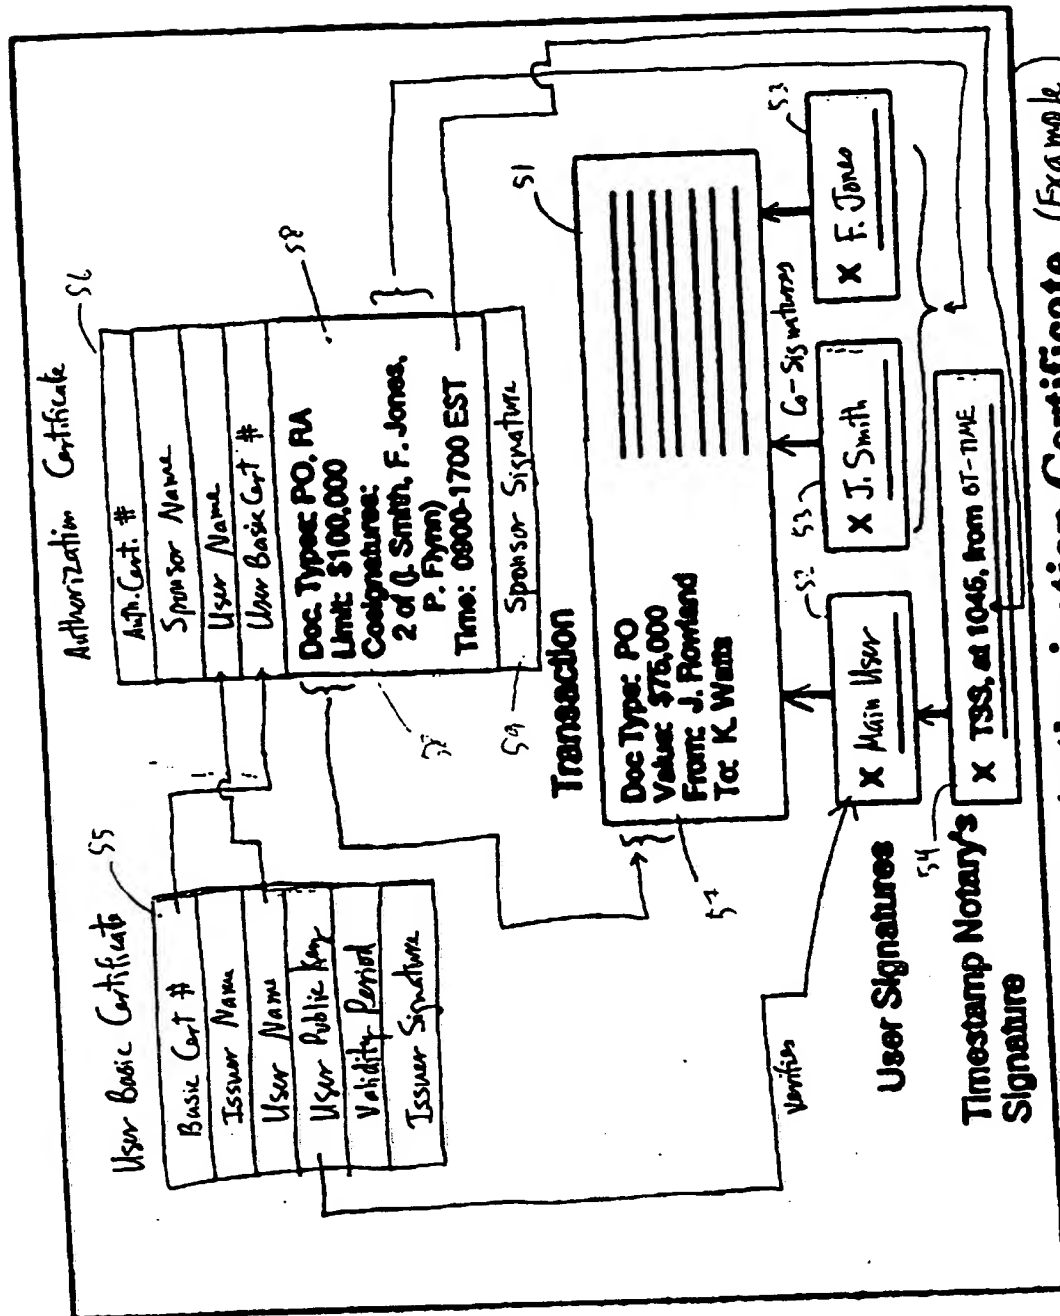 User Basic Certificate
55
Basic Cert #
Issuer Name
User Name
User Public Key
Validity Period
Issuer Signature
Authorization Certificate
56
Auth. Cert. #
Sponsor Name
User Name
User Basic Cert #
Doc. Types: PO, RA
Limit: $100,000
Cosignatures:
2 of (J. Smith, F. Jones,
P. Flynn)
Time: 0900-1700 EST
58
58
Sponsor Signature
59
Transaction
51
Doc Type: PO
Value: $75,000
From: J. Rowland
To: K. Watts
57
verifies
Co-Signatures
User Signatures
52
X Main User
53
X J. Smith
53
X F. Jones
Timestamp Notary's
Signature
54
X TSS, at 1045, from BT-TIME
Certificate (Example